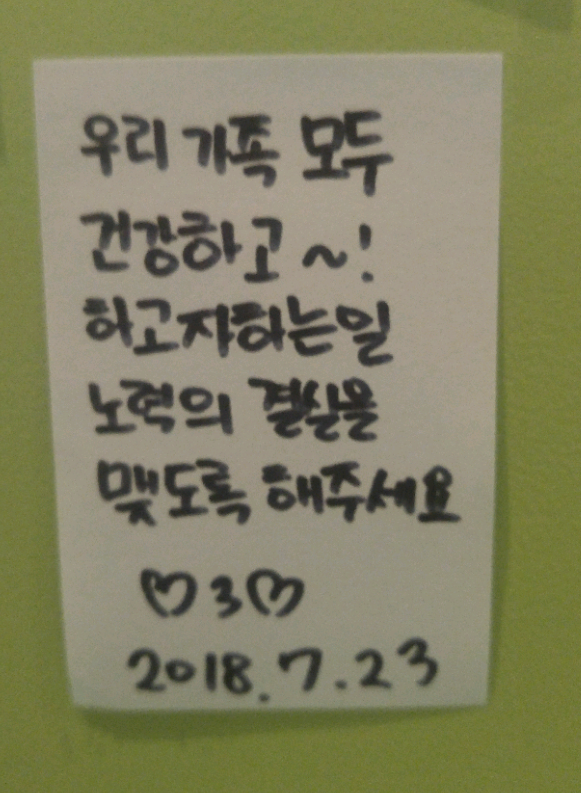 우리 가족 모두
건강하고 ~!
하고자하는일
노력의 결실을
맺도록 해주세요
♡3♡
2018.7.23